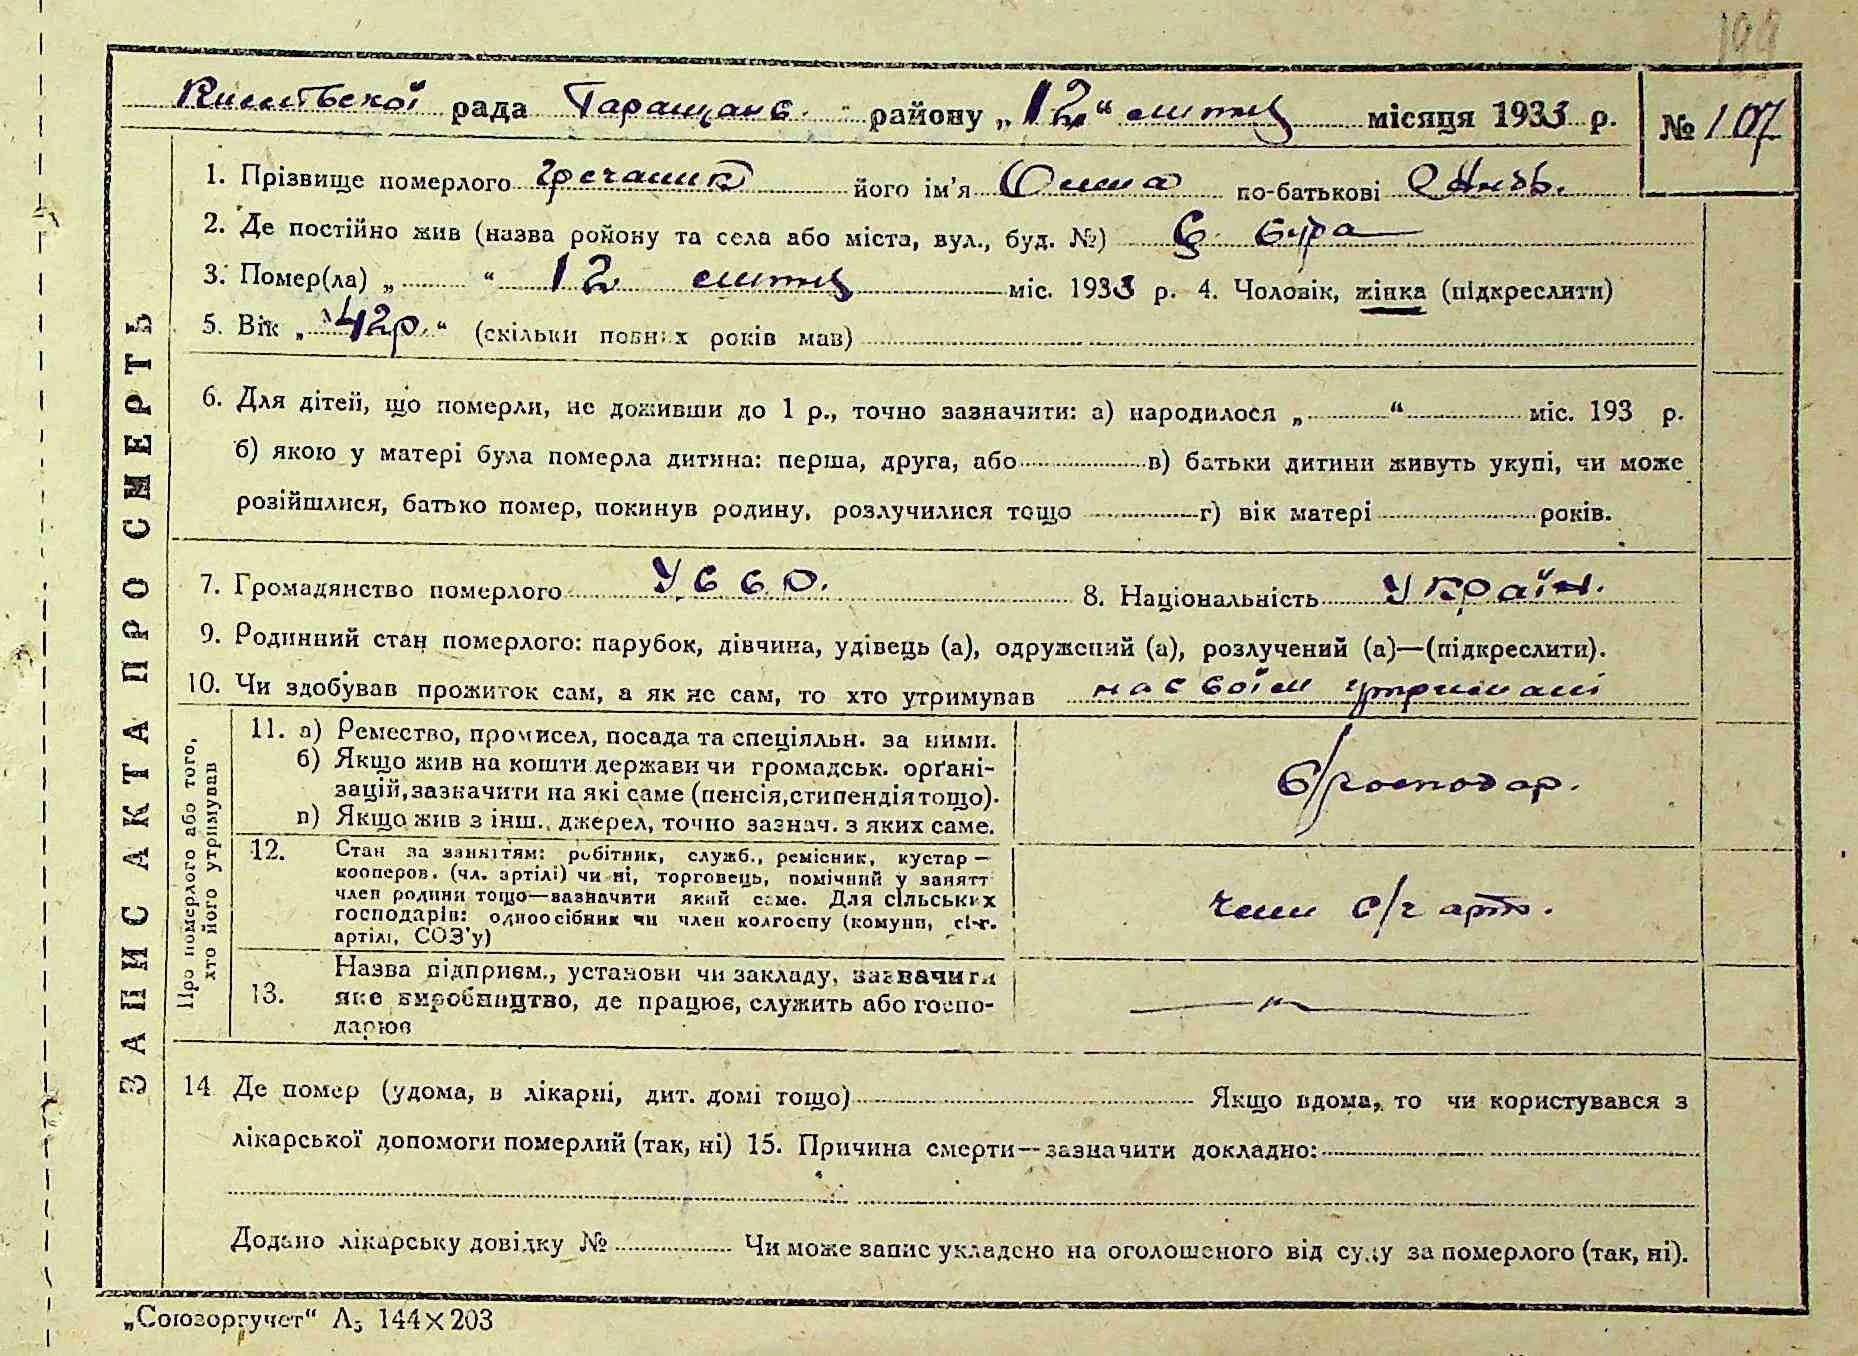 199
рада Таращанс. району „12“ липня місяця 1933 р. № 107
1. Прізвище померлого Гречаник його ім'я по-батькові
2. Де постійно жив (назва ройону та села або міста, вул., буд. №)
3. Помер(ла) „ “ 12 липня міс. 1933 р. 4. Чоловік, жінка (підкреслити)
5. Вік „42р.“ (скільки повних років мав)
6. Для дітей, що померли, не доживши до 1 р., точно зазначити: а) народилося „ “ міс. 193 р.
б) якою у матері була померла дитина: перша, друга, або в) батьки дитини живуть укупі, чи може
розійшлися, батько помер, покинув родину, розлучилися тощо г) вік матері років.
7. Громадянство померлого УССР. 8. Національність Україн.
9. Родинний стан померлого: парубок, дівчина, удівець (а), одружений (а), розлучений (а)—(підкреслити).
10. Чи здобував прожиток сам, а як не сам, то хто утримував на своїм утримані
ЗАПИС АКТА ПРО СМЕРТЬ
Про померлого або того,
хто його утримував
11. а) Ремество, промисел, посада та спеціяльн. за ними.
б) Якщо жив на кошти держави чи громадськ. орґані-
зацій, зазначити на які саме (пенсія, стипендія тощо).
в) Якщо жив з інш. джерел, точно зазнач. з яких саме.
с/господар.
12. Стан за заняттям: робітник, служб., ремісник, кустар —
кооперов. (чл. артілі) чи ні, торговець, помічний у занятт
член родини тощо—зазначити який саме. Для сільських
господарів: одноосібник чи член колгоспу (комуни, с.-г.
артілі, СОЗ'у)
член с/г арт.
13. Назва підприєм., установи чи закладу, зазначити
яке виробництво, де працює, служить або госпо-
дарює
14 Де помер (удома, в лікарні, дит. домі тощо) Якщо вдома, то чи користувався з
лікарської допомоги померлий (так, ні) 15. Причина смерти—зазначити докладно:
Додано лікарську довідку № Чи може запис укладено на оголошеного від суду за померлого (так, ні).
„Союзоргучет“ А₅ 144×203